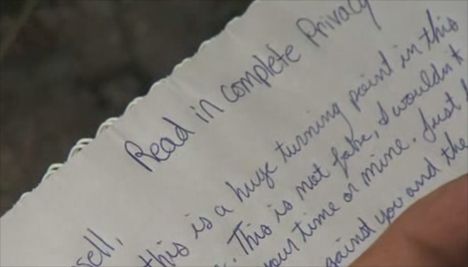 Read in complete Privacy
sell,
this is a huge turning point in this
. This is not fake, I wouldn't
your time or mine. Just
against you and the